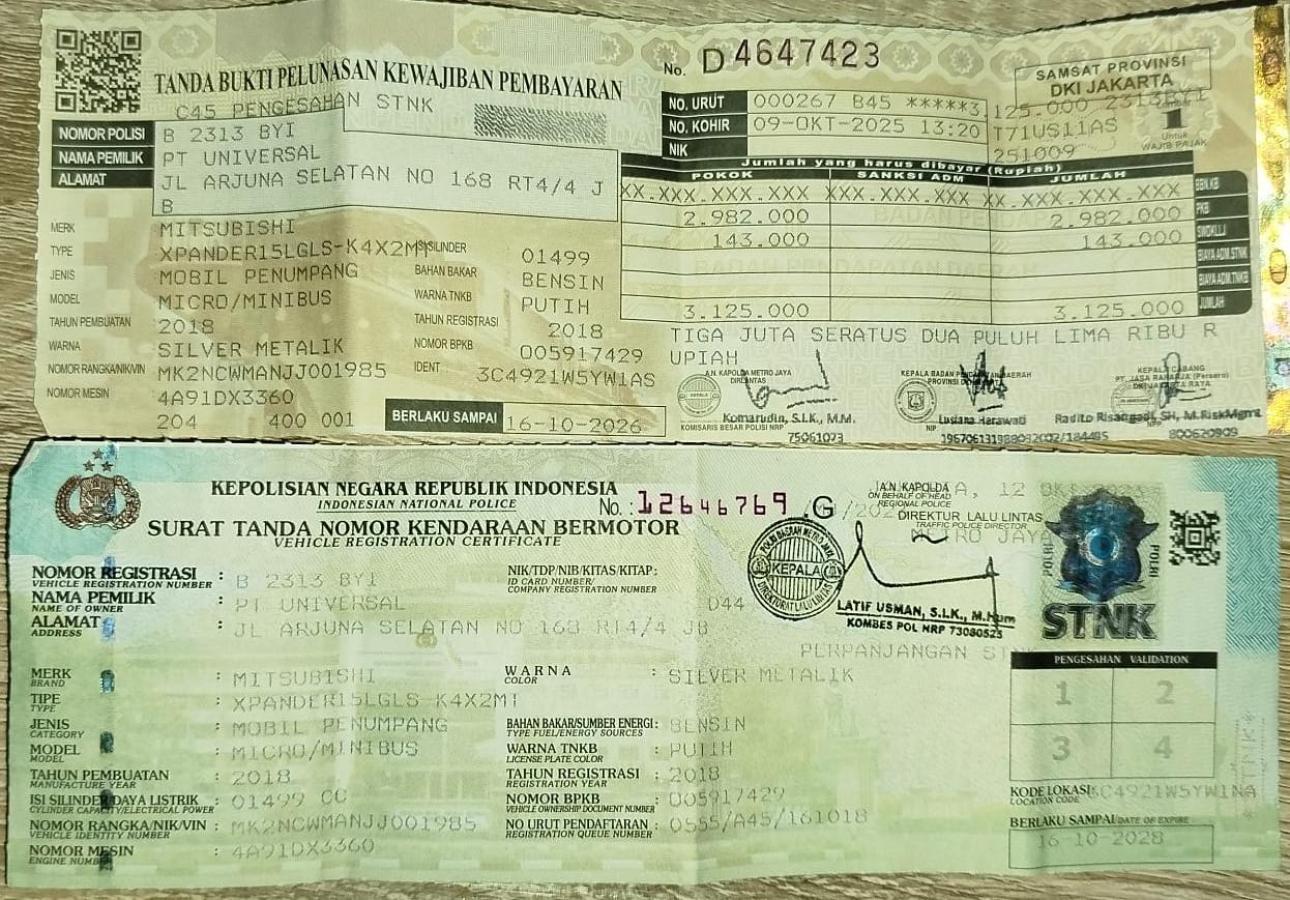 TANDA BUKTI PELUNASAN KEWAJIBAN PEMBAYARAN
No. D 4647423
SAMSAT PROVINSI
DKI JAKARTA
C45 PENGESAHAN STNK
NO. URUT 000267 B45 *****3.125.000 2313BYI
NOMOR POLISI B 2313 BYI
NO. KOHIR 09-OKT-2025 13:20 T71US11AS
1
Untuk
WAJIB PAJAK
NAMA PEMILIK PT UNIVERSAL
NIK 251009
ALAMAT JL ARJUNA SELATAN NO 168 RT4/4 J
B
Jumlah yang harus dibayar (Rupiah)
POKOK SANKSI ADM JUMLAH
XX.XXX.XXX.XXX XXX.XXX.XXX.XXX XX.XXX.XXX.XXX BBN.KB
2.982.000 2.982.000 PKB
143.000 143.000 SWDKLLJ
BIAYA ADM.STNK
BIAYA ADM.TNKB
3.125.000 3.125.000 JUMLAH
MERK MITSUBISHI
TYPE XPANDER15LGLS-K4X2MT ISI SILINDER 01499
JENIS MOBIL PENUMPANG BAHAN BAKAR BENSIN
MODEL MICRO/MINIBUS WARNA TNKB PUTIH
TAHUN PEMBUATAN 2018 TAHUN REGISTRASI 2018
WARNA SILVER METALIK NOMOR BPKB 005917429
NOMOR RANGKA/NIK/VIN MK2NCWMANJJ001985 IDENT 3C4921W5YW1AS
NOMOR MESIN 4A91DX3360
204 400 001 BERLAKU SAMPAI 16-10-2026
TIGA JUTA SERATUS DUA PULUH LIMA RIBU R
UPIAH
A.N. KAPOLDA METRO JAYA
DIRLANTAS
Komarudin, S.I.K., M.M.
KOMISARIS BESAR POLISI NRP 75061073
KEPALA BADAN PENDAPATAN DAERAH
Lusiana Herawati
NIP.
KEPALA CABANG
PT. JASA RAHARJA (Persero)
DKI JAKARTA RAYA
Radito Risangadi, SH, M.RiskMgmt
800620909
KEPOLISIAN NEGARA REPUBLIK INDONESIA
INDONESIAN NATIONAL POLICE
No. : 12646769 .G
SURAT TANDA NOMOR KENDARAAN BERMOTOR
VEHICLE REGISTRATION CERTIFICATE
A.N. KAPOLDA
ON BEHALF OF HEAD
REGIONAL POLICE
DIREKTUR LALU LINTAS
TRAFFIC POLICE DIRECTOR
METRO JAYA
KEPALA
LATIF USMAN, S.I.K., M.Hum
KOMBES POL NRP 73080525
POLRI
POLRI
STNK
NOMOR REGISTRASI : B 2313 BYI
VEHICLE REGISTRATION NUMBER
NIK/TDP/NIB/KITAS/KITAP:
ID CARD NUMBER/
COMPANY REGISTRATION NUMBER
NAMA PEMILIK : PT UNIVERSAL D44
NAME OF OWNER
ALAMAT : JL ARJUNA SELATAN NO 168 RT4/4 JB
ADDRESS
PERPANJANGAN STNK
PENGESAHAN VALIDATION
1 2
3 4
MERK : MITSUBISHI
BRAND
WARNA : SILVER METALIK
COLOR
TIPE : XPANDER15LGLS-K4X2MT
TYPE
JENIS : MOBIL PENUMPANG
CATEGORY
BAHAN BAKAR/SUMBER ENERGI : BENSIN
TYPE FUEL/ENERGY SOURCES
MODEL : MICRO/MINIBUS
MODEL
WARNA TNKB : PUTIH
LICENSE PLATE COLOR
TAHUN PEMBUATAN : 2018
MANUFACTURE YEAR
TAHUN REGISTRASI : 2018
REGISTRATION YEAR
ISI SILINDER/DAYA LISTRIK : 01499 CC
CYLINDER CAPACITY/ELECTRICAL POWER
NOMOR BPKB : 005917429
VEHICLE OWNERSHIP DOCUMENT NUMBER
KODE LOKASI
LOCATION CODE
NOMOR RANGKA/NIK/VIN : MK2NCWMANJJ001985
VEHICLE IDENTITY NUMBER
NO URUT PENDAFTARAN : 0555/A45/161018
REGISTRATION QUEUE NUMBER
NOMOR MESIN : 4A91DX3360
ENGINE NUMBER
BERLAKU SAMPAI DATE OF EXPIRE
16-10-2028